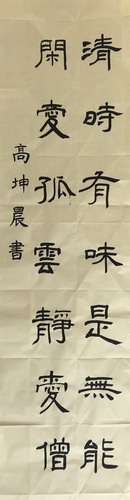 清時有味是無能
閑愛孤雲靜愛僧
高坤晨書